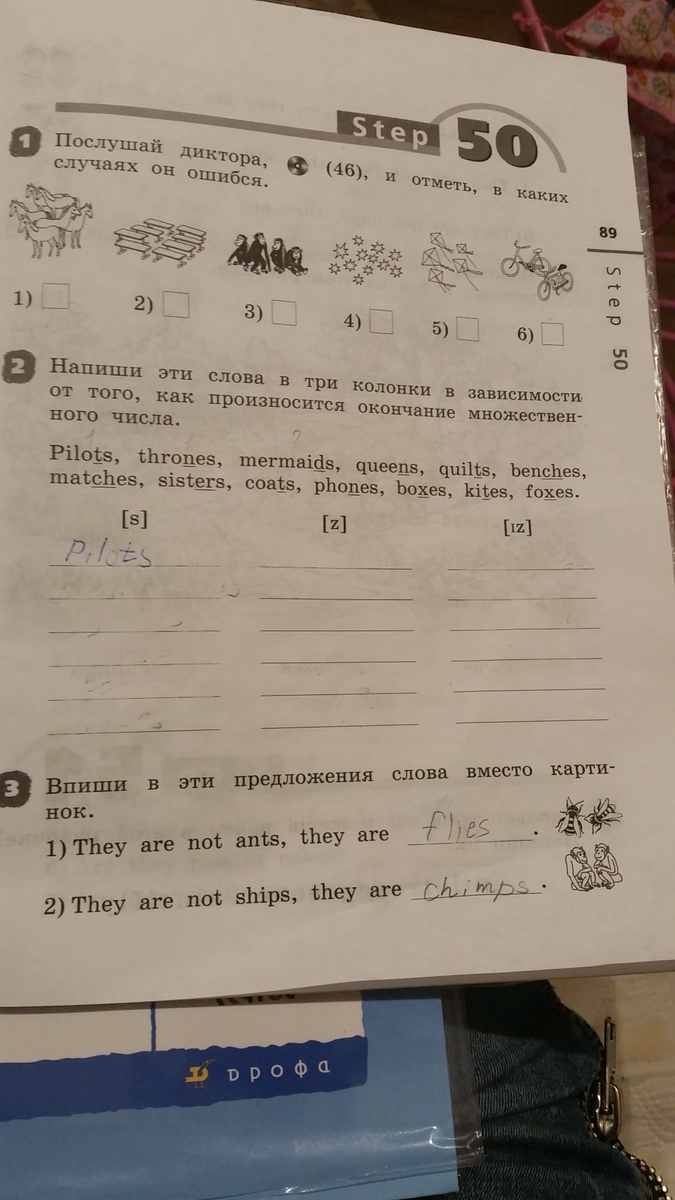 Step 50
1 Послушай диктора, (46), и отметь, в каких
случаях он ошибся.
89
Step 50
1) 2) 3) 4) 5) 6)
2 Напиши эти слова в три колонки в зависимости
от того, как произносится окончание множествен-
ного числа.
Pilots, thrones, mermaids, queens, quilts, benches,
matches, sisters, coats, phones, boxes, kites, foxes.
[s] [z] [ɪz]
Pilots
3 Впиши в эти предложения слова вместо карти-
нок.
1) They are not ants, they are flies.
2) They are not ships, they are chimps.
дрофа